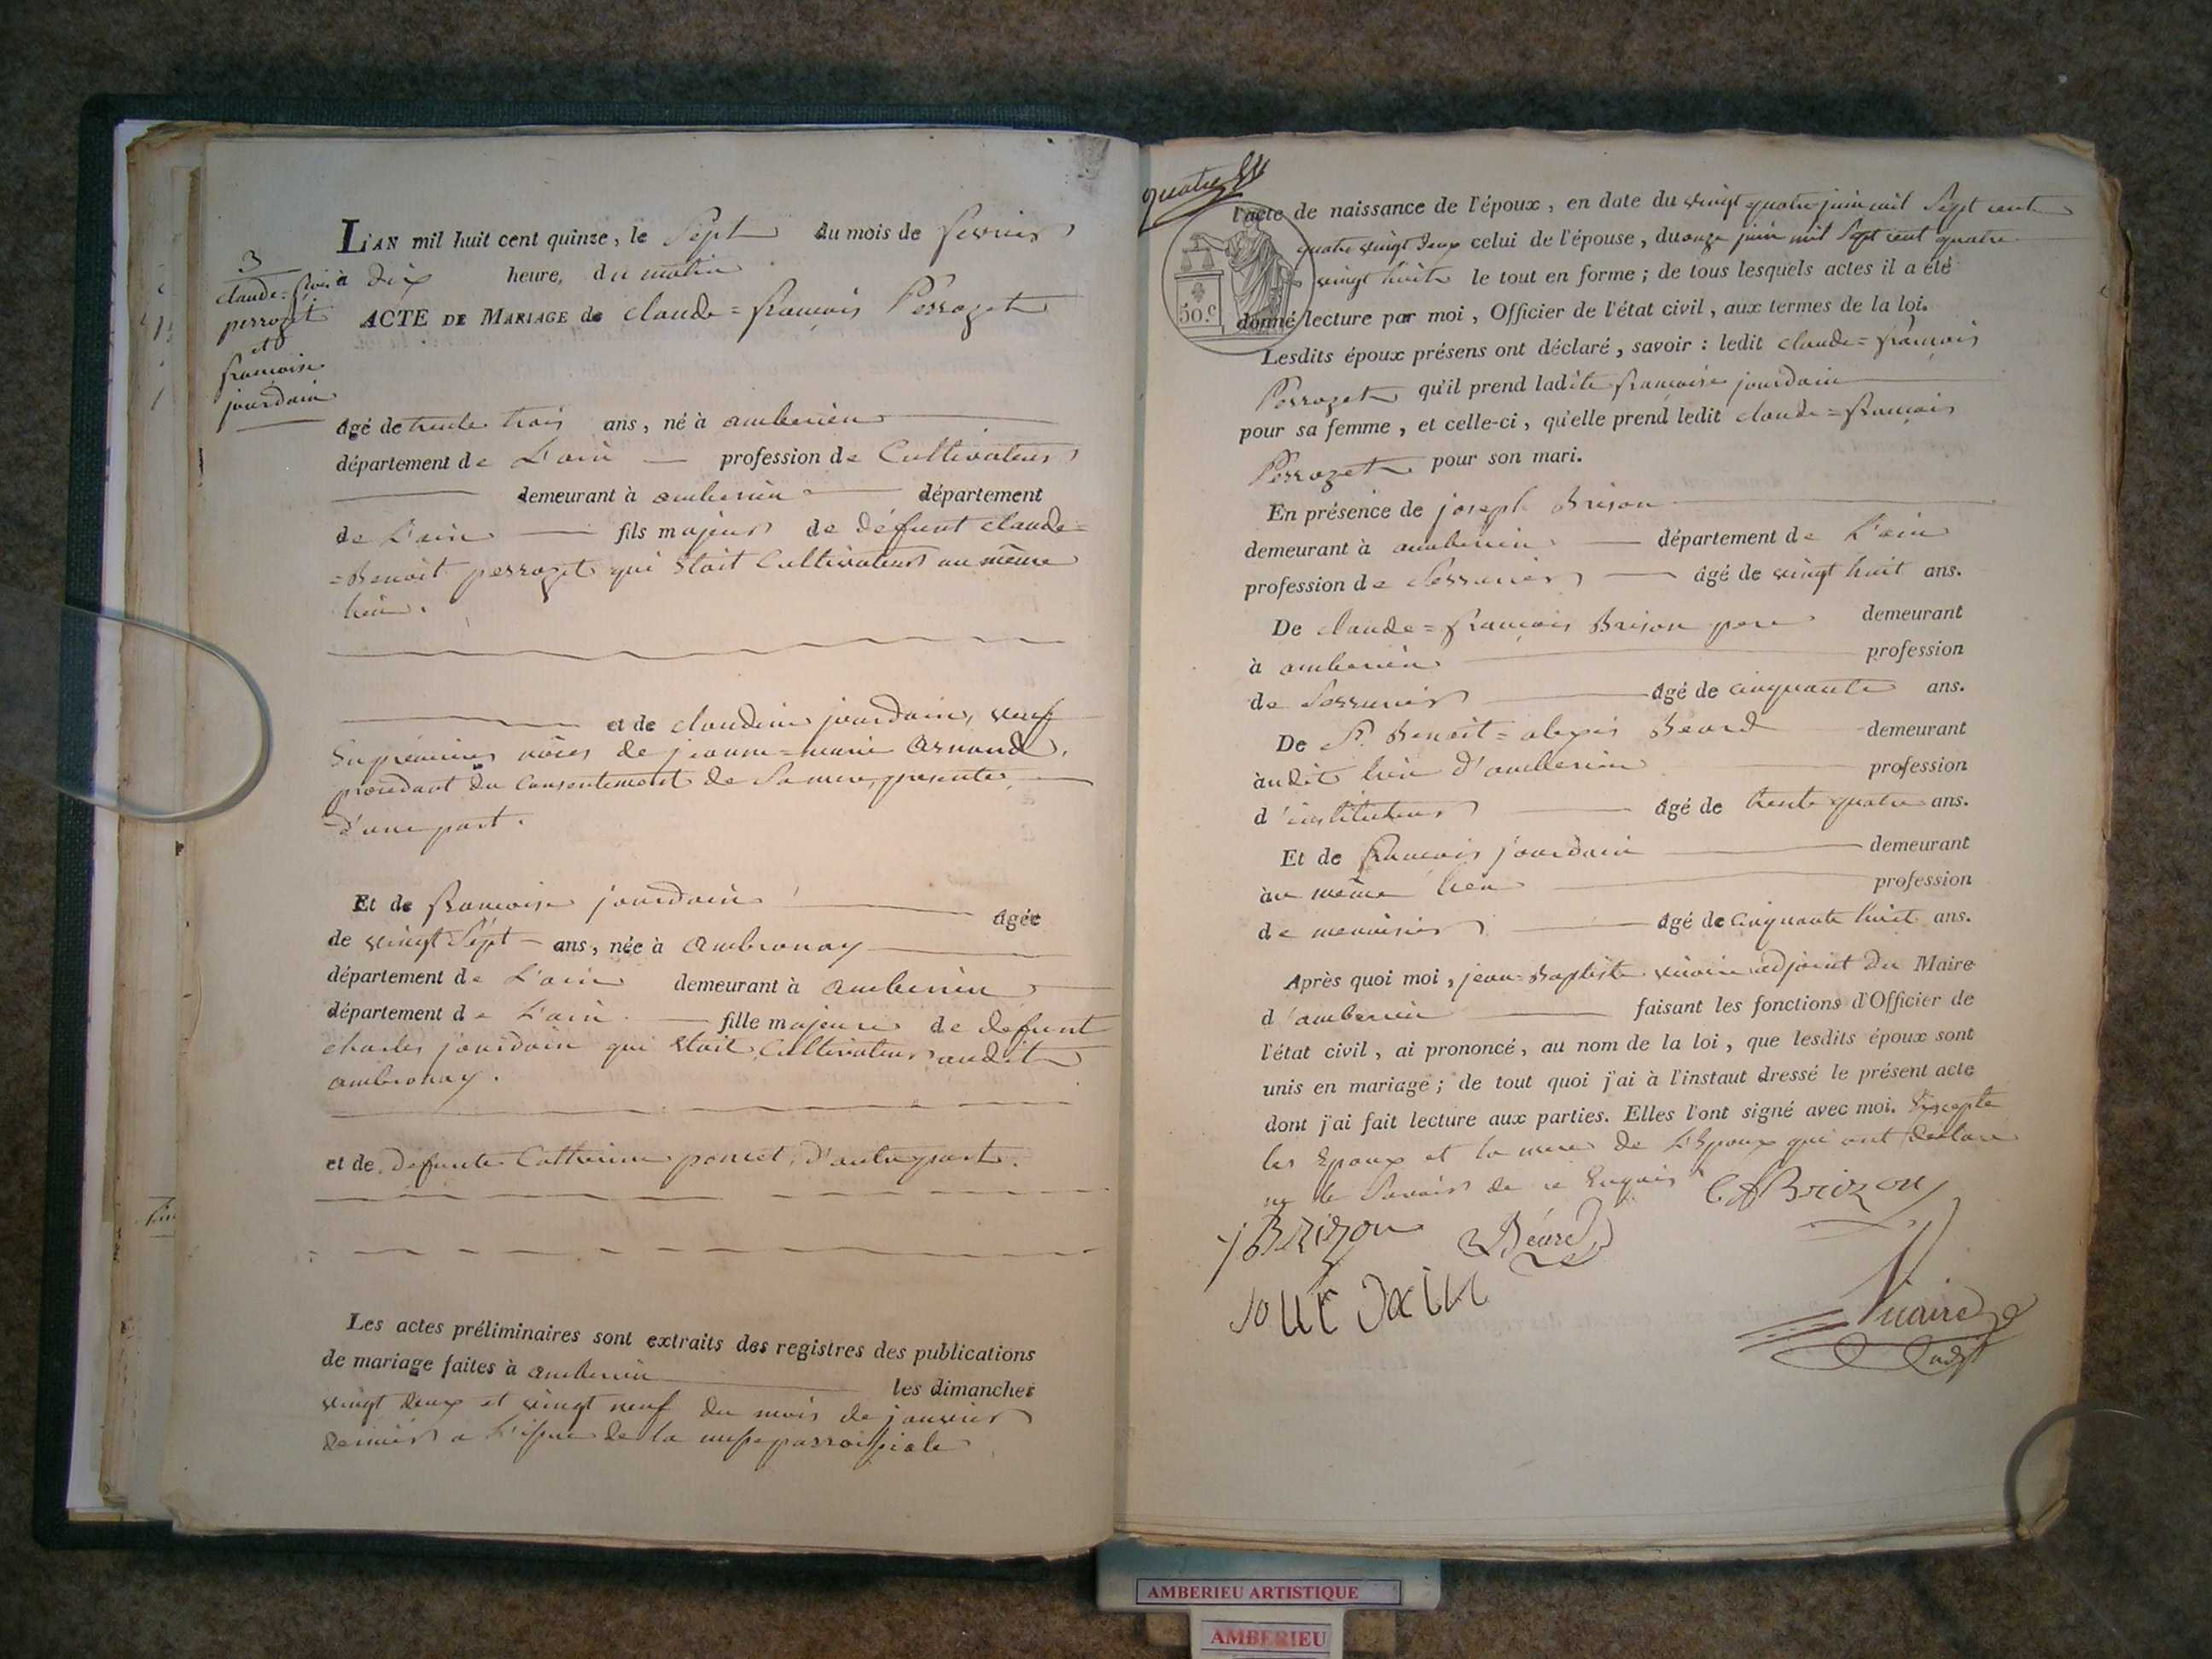 3
claude=fçois
perrozet
et
francoise
jourdain
L'AN mil huit cent quinze, le Sept du mois de fevrier
à dix heure, du matin
ACTE DE MARIAGE de claude=francois Perrozet
âgé de trente trois ans, né à amberieu
département de L'ain profession de Cultivateur
demeurant à amberieu département
de L'ain fils majeur de défunt claude=
=Benoit perrozet qui Etait Cultivateur au même
lieu.
et de claudine jourdain, veuf
En premieres nôces de jeanne=marie Arnaud,
procedant du consentement de Sa mere, presente,
d'une part.
Et de francoise jourdain agée
de vingt Sept ans, née à ambronay
département de L'ain demeurant à amberieu
département de L'ain fille majeure de defunt
charles jourdain qui Etait Cultivateur audit
ambronay.
et de defunte Catherine poncet, d'autre part.
Les actes préliminaires sont extraits des registres des publications
de mariage faites à amberieu les dimanches
vingt deux et vingt neuf du mois de janvier
dernier a L'issue de la messe parroissiale
quatre
50.c
l'acte de naissance de l'époux, en date du vingt quatre juin mil Sept cent
quatre vingt deux celui de l'épouse, du onze juin mil Sept cent quatre
vingt huit le tout en forme; de tous lesquels actes il a été
donné lecture par moi, Officier de l'état civil, aux termes de la loi.
Lesdits époux présens ont déclaré, savoir: ledit claude=francois
Perrozet qu'il prend ladite francoise jourdain
pour sa femme, et celle-ci, qu'elle prend ledit claude=francois
Perrozet pour son mari.
En présence de joseph Brison
demeurant à amberieu département de L'ain
profession de Serrurier âgé de vingt huit ans.
De claude=francois Brison pere demeurant
à amberieu profession
de Serrurier âgé de cinquante ans.
De Sr. Benoit=alexis Beard demeurant
audit lieu d'amberieu profession
d'instituteur âgé de trente quatre ans.
Et de francois jourdain demeurant
au même lieu profession
de menuisier âgé de cinquante huit ans.
Après quoi moi, jean=Baptiste vicaire adjoint du Maire
d'amberieu faisant les fonctions d'Officier de
l'état civil, ai prononcé, au nom de la loi, que lesdits époux sont
unis en mariage; de tout quoi j'ai à l'instant dressé le présent acte
dont j'ai fait lecture aux parties. Elles l'ont signé avec moi. Excepté
les Epoux et la mere de L'Epoux qui ont declare
ne le Savoir de ce Enquis
C f Brizon
j Brizon
Béard
jourdain
Vicaire
adjt
AMBERIEU ARTISTIQUE
AMBERIEU